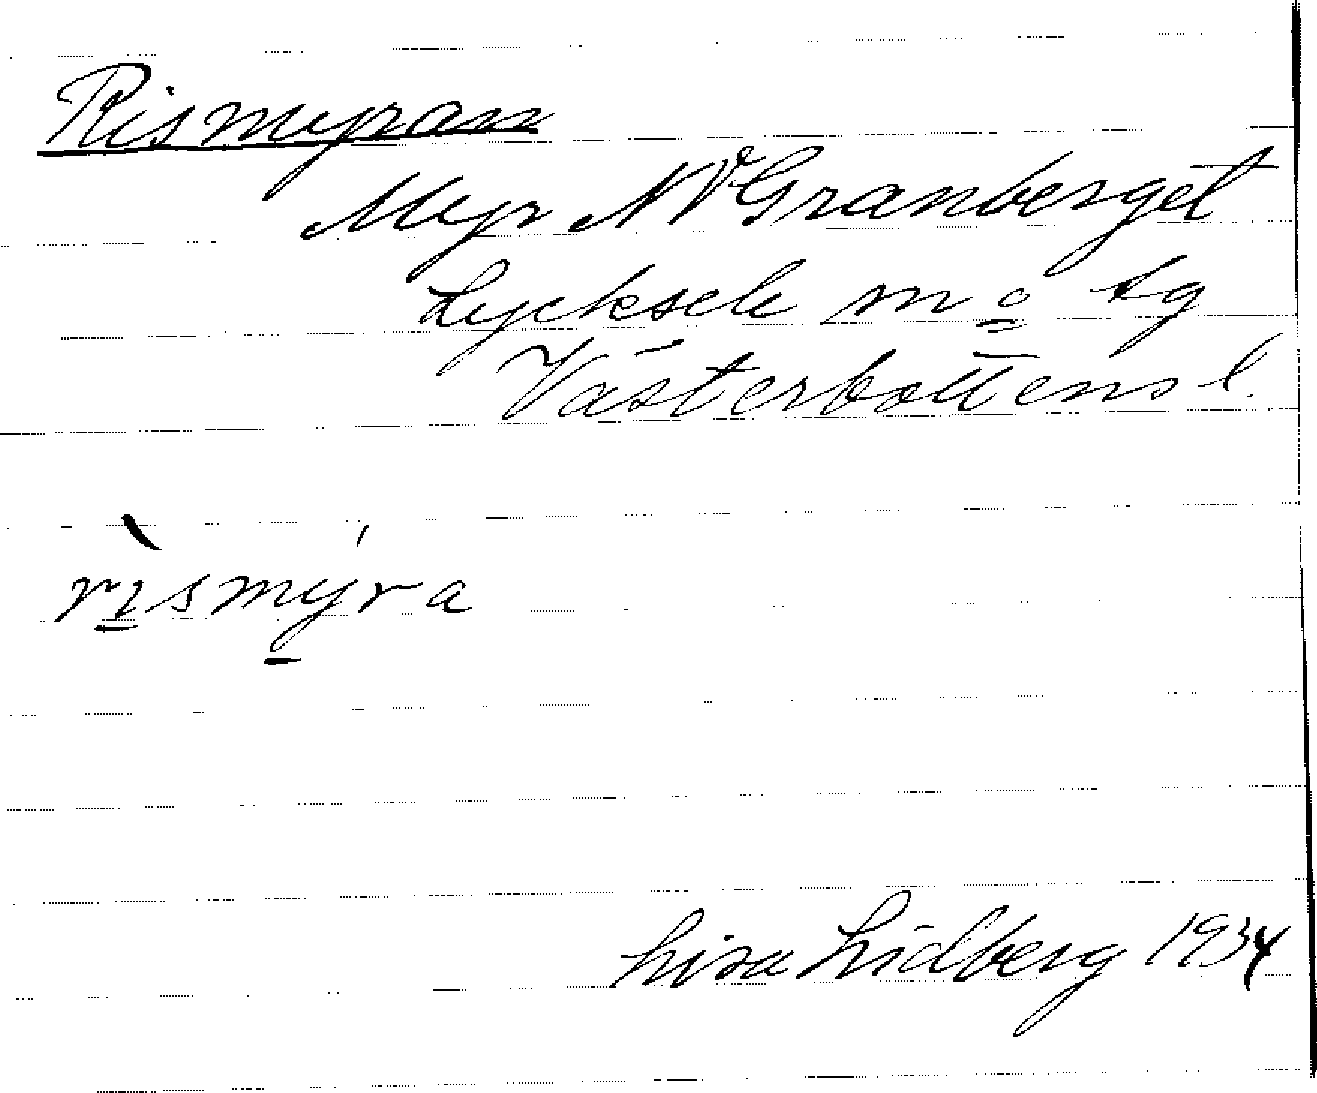 Rismyran
Myr NV Granberget
Lycksele m o tg
Västerbottens l.
rìsmýra
Lisa Lidberg 1934